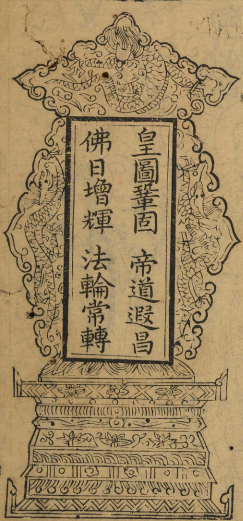 皇圖鞏固 帝道遐昌
佛日增輝 法輪常轉